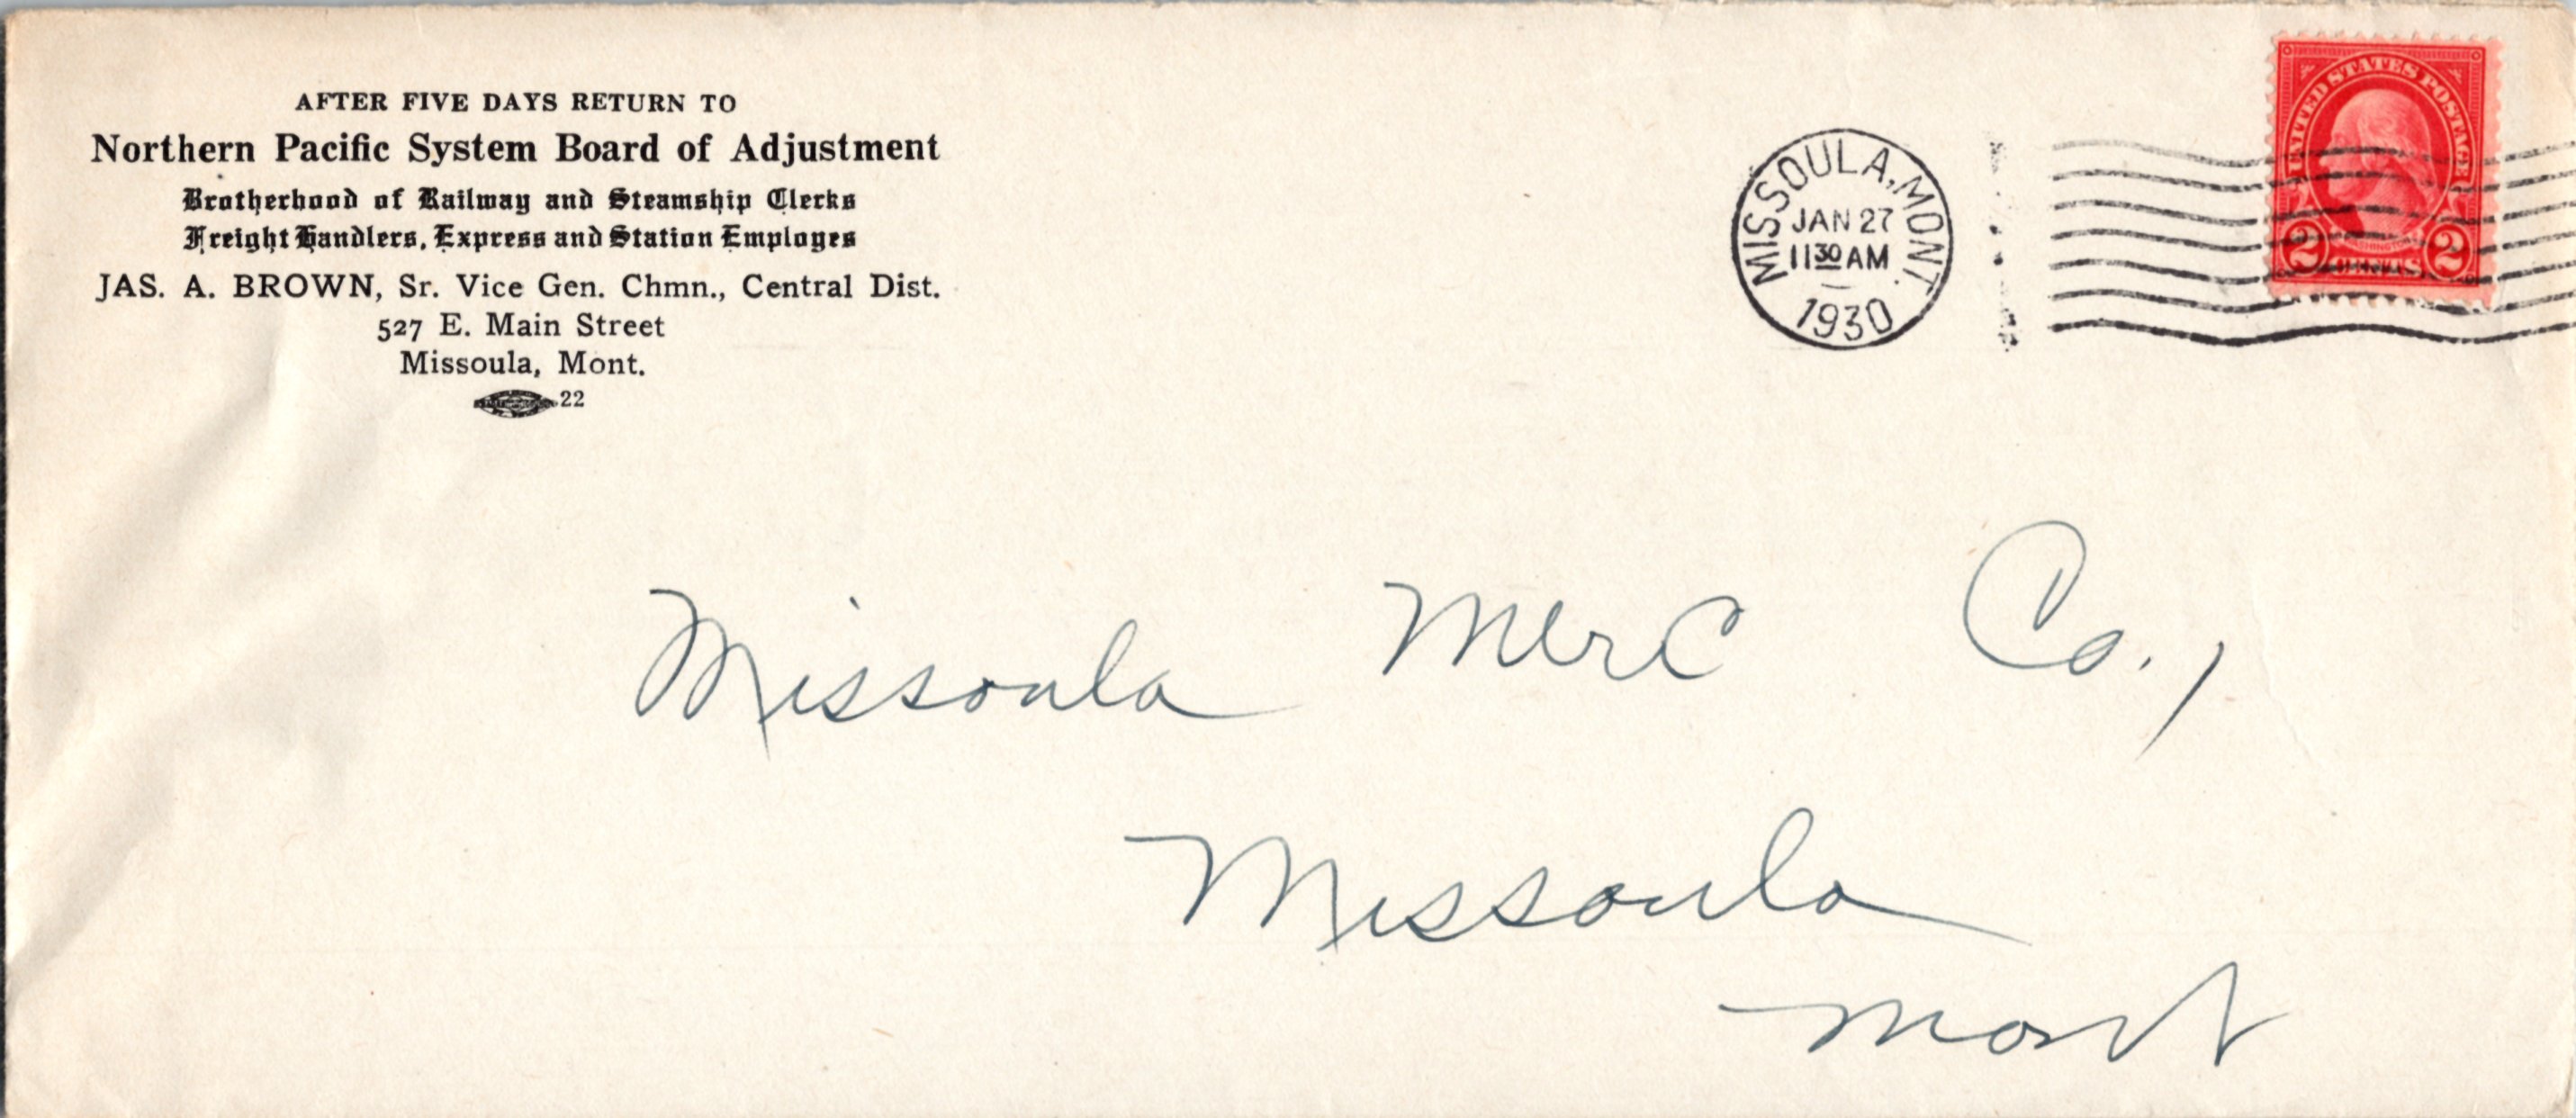 AFTER FIVE DAYS RETURN TO
Northern Pacific System Board of Adjustment
Brotherhood of Railway and Steamship Clerks
Freight Handlers, Express and Station Employes
JAS. A. BROWN, Sr. Vice Gen. Chmn., Central Dist.
527 E. Main Street
Missoula, Mont.
22
MISSOULA, MONT.
JAN 27
11 30 AM
1930
UNITED STATES POSTAGE
WASHINGTON
2 CENTS 2
Missoula Merc Co.,
Missoula
Mont